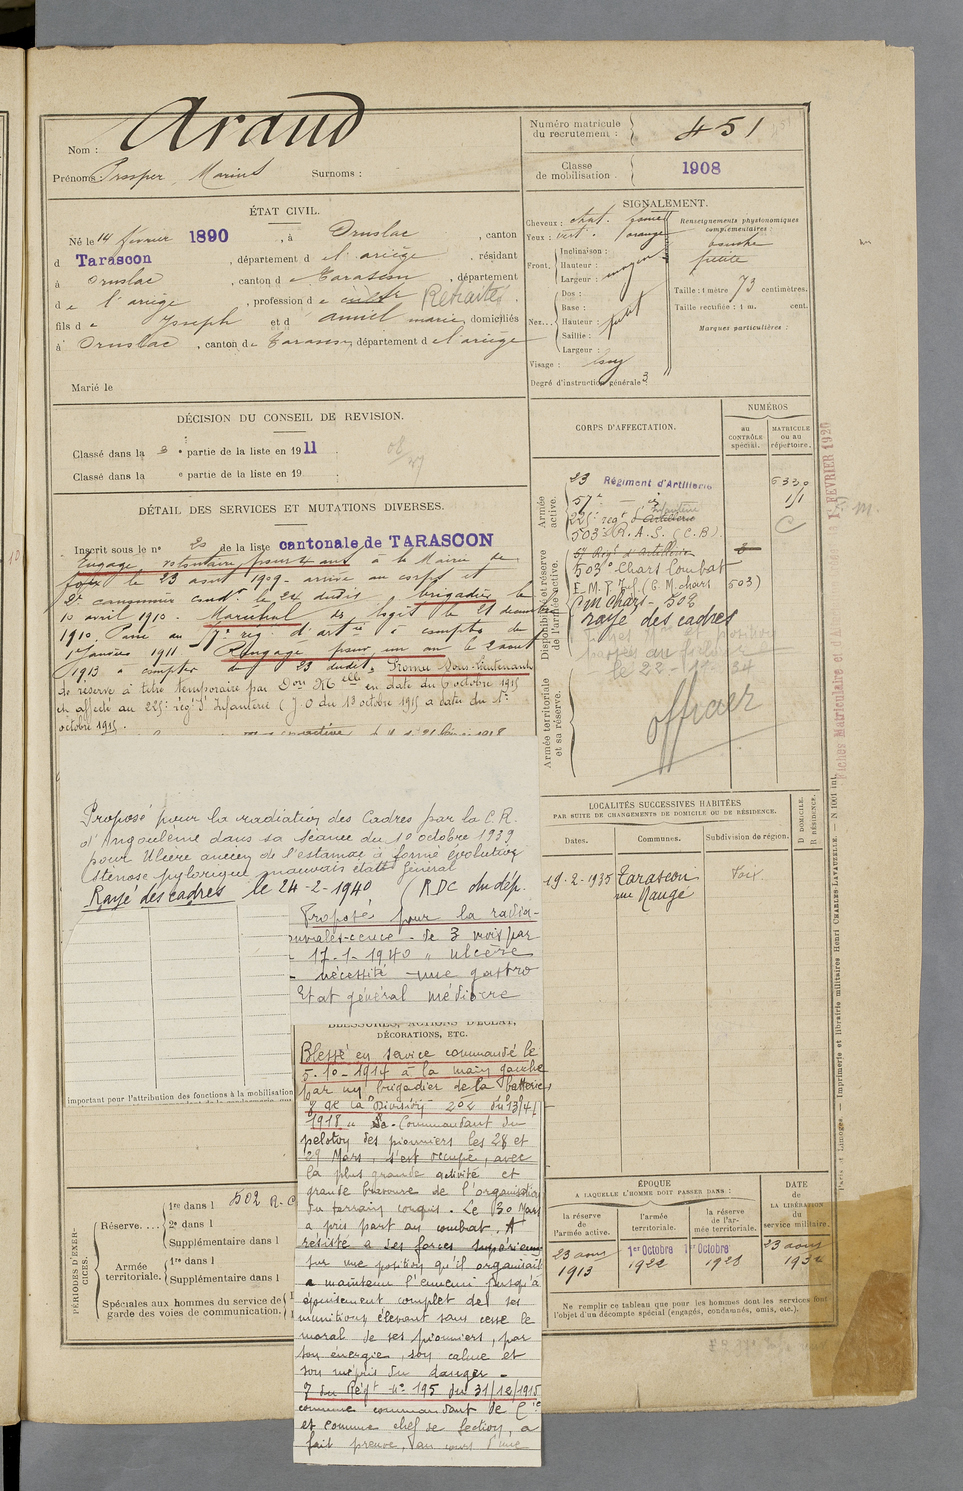 Nom : Araud
Prénoms : Prosper Marius Surnoms :
Numéro matricule du recrutement : 451
Classe de mobilisation : 1908
ÉTAT CIVIL.
Né le 14 février 1890, à Ornolac, canton
d Tarascon, département d e l'ariège, résidant
à Ornolac, canton d e Tarascon, département
d e l'ariège, profession d e Retraité.
fils d e Joseph et d Amiel marie, domiciliés
à Ornolac, canton de Tarascon, département d e l'ariège
Marié le
SIGNALEMENT.
Cheveux : chat.
Yeux : vert. orangé
Front. Inclinaison :
Hauteur : moyen
Largeur :
Nez... Dos :
Base :
Hauteur : petit
Saillie :
Largeur :
Visage : long
Degré d'instruction générale 3
Renseignements physionomiques complémentaires :
bouche
petite
Taille : 1 mètre 73 centimètres.
Taille rectifiée : 1 m. cent.
Marques particulières :
DÉCISION DU CONSEIL DE REVISION.
Classé dans la 3 e partie de la liste en 1911
Classé dans la e partie de la liste en 19
DÉTAIL DES SERVICES ET MUTATIONS DIVERSES.
Inscrit sous le n° 20 de la liste cantonale de TARASCON
Engagé volontaire pour 4 ans à la Mairie de
foix le 23 aout 1909 - arrivé au corps et
2e canonnier cond le 24 dudit, brigadier le
10 avril 1910. Maréchal des logis le 21 décembre
1910. Passé au 57e rég d'artie à compter du
1er Janvier 1911 - Rengagé pour un an le 2 aout
1913 à compter du 23 dudit, Promu Sous-Lieutenant
de réserve à titre temporaire par Don Melle en date du 6 octobre 1915
et affecté au 225e rég d'Infanterie (J.O du 13 octobre 1915 à dater du 1er
octobre 1915.
Proposé pour la radiation des Cadres par la C.R.
d'Angoulême dans sa séance du 10 octobre 1939
pour Ulcère ancien de l'estomac à forme évolutive
Sténose pylorique mauvais état général
Rayé des cadres le 24-2-1940 (RDC du dép.
Proposé pour la radia-
convales-cence - de 3 mois par
17-1-1940 " ulcère
nécessité une gastro
Etat général médiocre
important pour l'attribution des fonctions à la mobilisation
BLESSURES, ACTIONS D'ÉCLAT,
DÉCORATIONS, ETC.
Blessé en service commandé le
5-10-1914 à la main gauche
par un brigadier de la batterie
de la Division 202 du 13/4/
1918 " Commandant du
peloton des pionniers les 28 et
29 Mars, s'est occupé, avec
la plus grande activité et
grande bravoure de l'organisation
du terrain conquis. Le 30 Mars
a pris part au combat. A
résisté à des forces supérieures
sur une position qu'il organisait
a maintenu l'ennemi jusqu'à
épuisement complet de ses
munitions élevant sans cesse le
moral de ses pionniers, par
son énergie, son calme et
son mépris du danger -
du Régt n° 195 du 31/12/1915
comme commandant de Cie
et comme chef de section, a
fait preuve, au cours d'une
CORPS D'AFFECTATION.
NUMÉROS
au CONTRÔLE spécial.
MATRICULE ou au répertoire.
Armée active.
23 Régiment d'Artillerie 6330
57e
225e regt d'Infanterie
503e R.A.S. (C.B)
Disponibilité et réserve de l'armée active.
57 Régt d'Artillerie
503e Chars Combat
E.M.P. (C M. chars 503)
Cm Chars - 502
rayé des cadres
le 22-11-34
Armée territoriale et sa réserve.
officier
LOCALITÉS SUCCESSIVES HABITÉES
PAR SUITE DE CHANGEMENTS DE DOMICILE OU DE RÉSIDENCE.
Dates. Communes. Subdivision de région. D DOMICILE. R RÉSIDENCE.
19-2-1935 Tarascon Foix
rue Naugé
PÉRIODES D'EXERCICES.
Réserve.... 1re dans l 502 R. C
2e dans l
Supplémentaire dans l
Armée territoriale. 1re dans l
Supplémentaire dans l
Spéciales aux hommes du service de
garde des voies de communication.
ÉPOQUE
A LAQUELLE L'HOMME DOIT PASSER DANS :
la réserve de l'armée active. l'armée territoriale. la réserve de l'armée territoriale.
DATE de LA LIBÉRATION du service militaire.
23 aout 1913 1er Octobre 1922 1er Octobre 1928 23 aout 1934
Ne remplir ce tableau que pour les hommes dont les services font
l'objet d'un décompte spécial (engagés, condamnés, omis, etc.).
Paris et Limoges. — Imprimerie et librairie militaires Henri CHARLES-LAVAUZELLE.